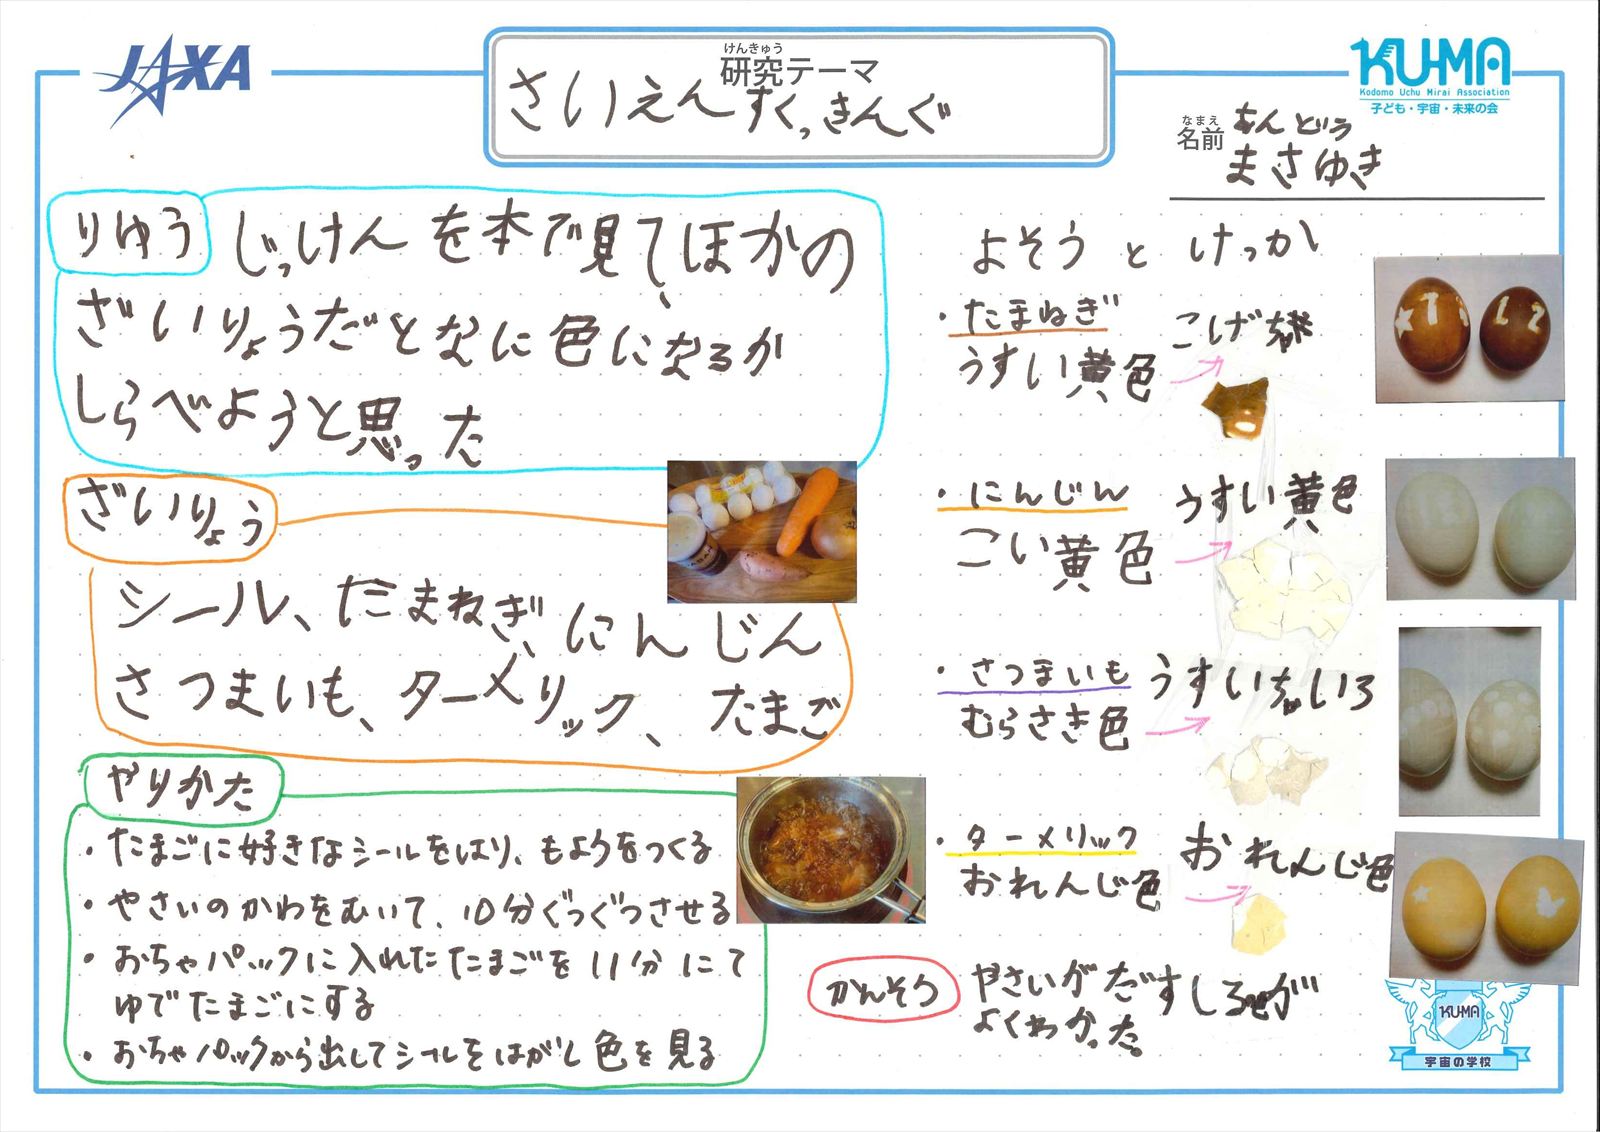 JAXA
けんきゅう
研究テーマ
さいえんすくっきんぐ
KU-MA
Kodomo Uchu Mirai Association
子ども・宇宙・未来の会
なまえ
名前
どう
まさゆき
りゅう
じっけんを本で見て、ほかの
ざいりょうだとなに色になるか
しらべようと思った
ざいりょう
シール、たまねぎ、にんじん
さつまいも、ターメリック、たまご
やりかた
・たまごに好きなシールをはり、もようをつくる
・やさいのかわをむいて、10分ぐつぐつさせる
・おちゃパックに入れたたまごを11分にて
ゆでたまごにする
・おちゃパックから出してシールをはがし色を見る
よそうとけっか
・たまねぎ
こげ茶
うすい黄色
・にんじん
うすい黄色
こい黄色
・さつまいも
うすいちゃいろ
むらさき色
・ターメリック
おれんじ色
おれんじ色
かんそう
やさいがだすしるが
よくわかった。
KU-MA
宇宙の学校